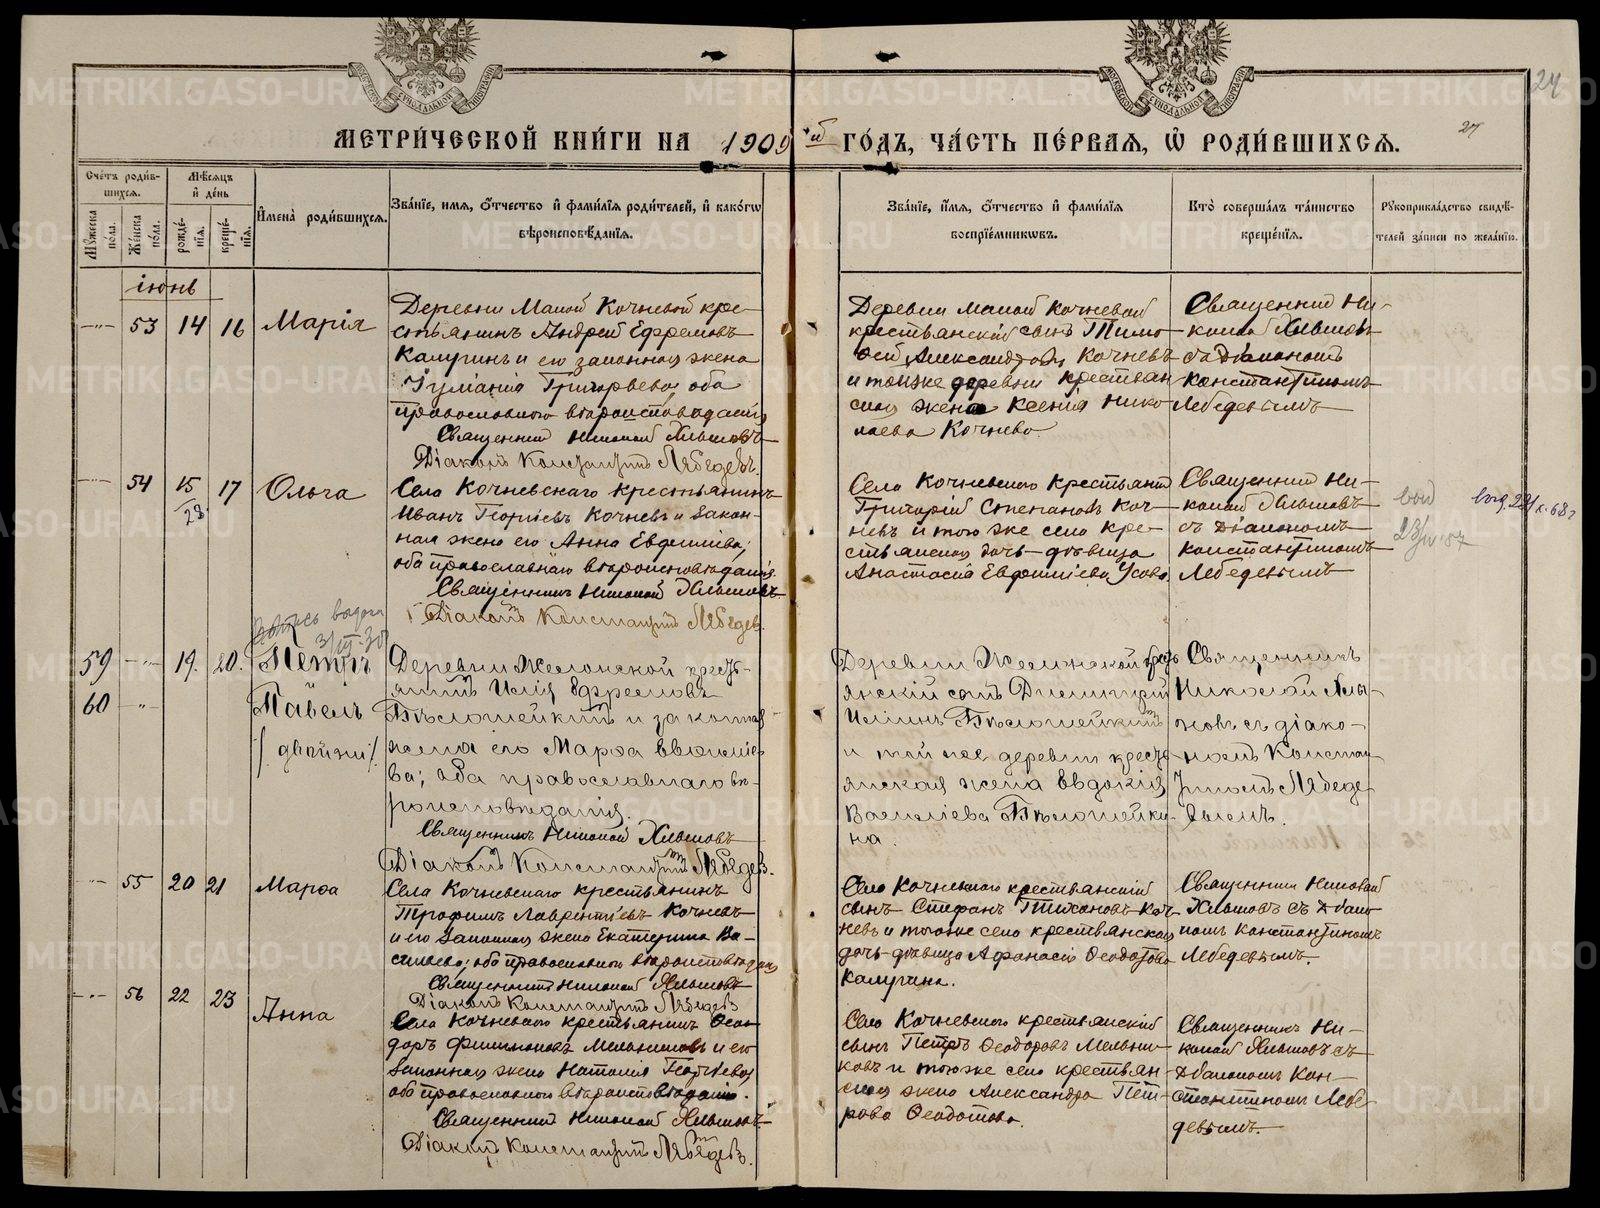 МЕТРИ́ЧЕСКОЙ КНИ́ГИ НА 1909 ый ГО́ДЪ, ЧА́СТЬ ПЕ́РВАѦ, Ѡ҆ РОДИ́ВШИХСѦ.
24
27
Сче́тъ роди́в-
шихсѧ.
Мꙋ́жеска по́ла.
Же́нска по́ла.
Мѣ́сѧцъ и҆ де́нь
рожде́-
нїѧ.
креще́-
нїѧ.
И҆мена̀ роди́вшихсѧ.
Зва́нїе, имѧ, о҆́тчество и҆ фами́лїѧ роди́телей, и҆ како́гѡ
вѣроисповѣ́данїѧ.
Зва́нїе, и҆́мѧ, о҆́тчество и҆ фами́лїѧ
воспрїе́мникѡвъ.
Кто̀ соверша́лъ та́инство
креще́нїѧ.
Рꙋкоприкла́дство свидѣ́-
телей за́писи по жела́нїю.
іюнь
53 14 16 Марія
Деревни Малой Кочневой кре-
стьянинъ Андрей Ефремовъ
Калугинъ и его законная жена
Іуліанія Григорьева, оба
православнаго вѣроисповѣданія
Священник Николай Хлыновъ
Діаконъ Константинъ Лебедевъ.
Деревни Малой Кочневой
крестьянскій сынъ Тимо-
ѳей Александровъ Кочневъ
и тойже деревни крестьян
ская жена Ксенія Нико-
лаева Кочнева.
Священник Ни-
колай Хлыновъ
съ Діакономъ
Константиномъ
Лебедевымъ
54 15 17 Ольга
28
Села Кочневскаго крестьянинъ
Иванъ Георгіевъ Кочневъ и закон-
ная жена его Анна Евфиміева;
оба православнаго вѣроисповѣданія.
Священникъ Николай Хлыновъ
Діаконъ Константинъ Лебедев.
Села Кочневскаго крестьянин
Григорій Степановъ Коч-
невъ и того же села кре-
стьянская дочь-дѣвица
Анастасія Евфиміева Усова
Священник Ни-
колай Хлыновъ
съ Діакономъ
Константиномъ
Лебедевымъ
59 19. 20. Петръ
60 Павелъ
/ двойни /.
Священникъ Николай Хлыновъ
Діаконъ Константинъ Лебедев.
Деревни
янскій сынъ Димитрій
и той же деревни кресть-
янская жена Евдокія
Священникъ
Николай Хлы-
новъ съ діако-
номъ Констан-
тиномъ Лебеде-
вымъ.
жена его Марѳа
ва; оба православнаго вѣ-
роисповѣданія.
55 20 21 Марѳа
Села Кочневскаго крестьянинъ
Трофимъ Лаврентіевъ Кочневъ
и его законная жена Екатерина Ва-
сильева; оба православнаго вѣроисповѣданія
Священникъ Николай Хлыновъ
Діаконъ Константинъ Лебедевъ
Села Кочневскаго крестьянскій
сынъ Стефанъ Тихоновъ Коч-
невъ и тогоже села крестьянская
дочь-дѣвица Аѳанасія Ѳеодотова
Калугина.
Священник Николай
Хлыновъ съ Діако-
номъ Константиномъ
Лебедевымъ.
56 22 23 Анна
Села Кочневскаго крестьянинъ Ѳео-
доръ Филимоновъ Мельниковъ и его
законная жена Наталія Георгіева
оба православнаго вѣроисповѣданія.
Священник Николай Хлыновъ
Діаконъ Константинъ Лебедевъ.
Села Кочневскаго крестьянскій
сынъ Петръ Ѳеодоровъ Мельни-
ковъ и тогоже села крестьян-
ская жена Александра Пет-
рова Ѳеодотова.
Священникъ Ни-
колай Хлыновъ съ
Діакономъ Кон-
стантиномъ Лебе-
девымъ.
METRIKI.GASO-URAL.RU